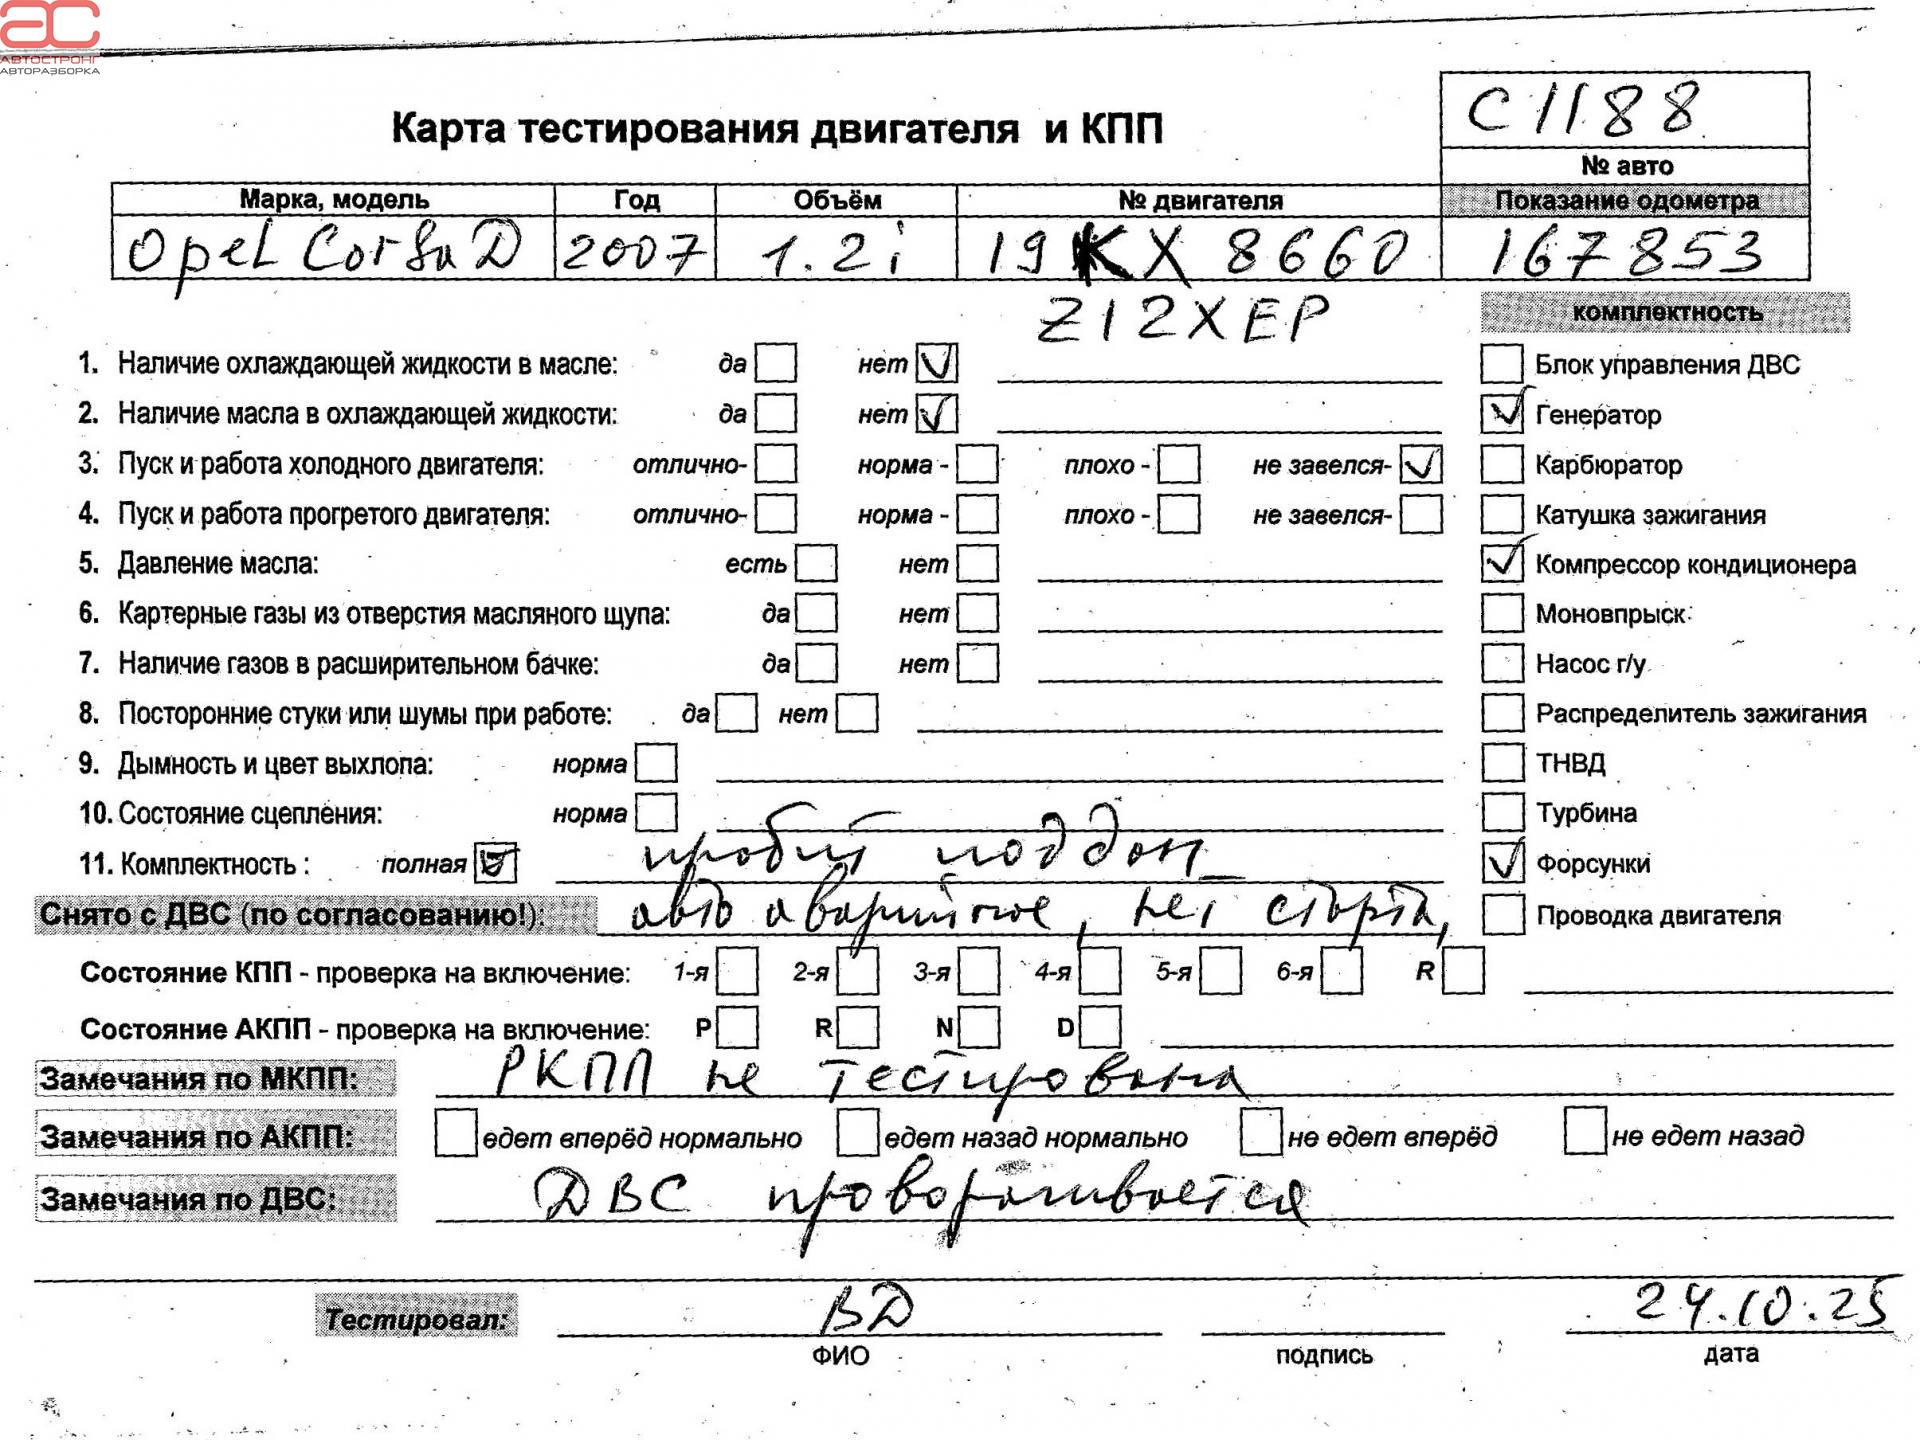 АВТОСТРОНГ
АВТОРАЗБОРКА
С1188
Карта тестирования двигателя и КПП
№ авто
Марка, модель Год Объём № двигателя Показание одометра
Opel Corsa D 2007 1.2i 19 KX 8660 167853
Z12XEP
комплектность
1. Наличие охлаждающей жидкости в масле: да нет Блок управления ДВС
2. Наличие масла в охлаждающей жидкости: да нет Генератор
3. Пуск и работа холодного двигателя: отлично- норма - плохо - не завелся- Карбюратор
4. Пуск и работа прогретого двигателя: отлично- норма - плохо - не завелся- Катушка зажигания
5. Давление масла: есть нет Компрессор кондиционера
6. Картерные газы из отверстия масляного щупа: да нет Моновпрыск
7. Наличие газов в расширительном бачке: да нет Насос г/у
8. Посторонние стуки или шумы при работе: да нет Распределитель зажигания
9. Дымность и цвет выхлопа: норма ТНВД
10. Состояние сцепления: норма Турбина
11. Комплектность : полная пробит поддон Форсунки
Снято с ДВС (по согласованию!): авто аварийное, нет старта, Проводка двигателя
Состояние КПП - проверка на включение: 1-я 2-я 3-я 4-я 5-я 6-я R
Состояние АКПП - проверка на включение: P R N D
Замечания по МКПП: РКПП не тестирована
Замечания по АКПП: едет вперёд нормально едет назад нормально не едет вперёд не едет назад
Замечания по ДВС: ДВС проворачивается
Тестировал: ВД 24.10.25
ФИО подпись дата